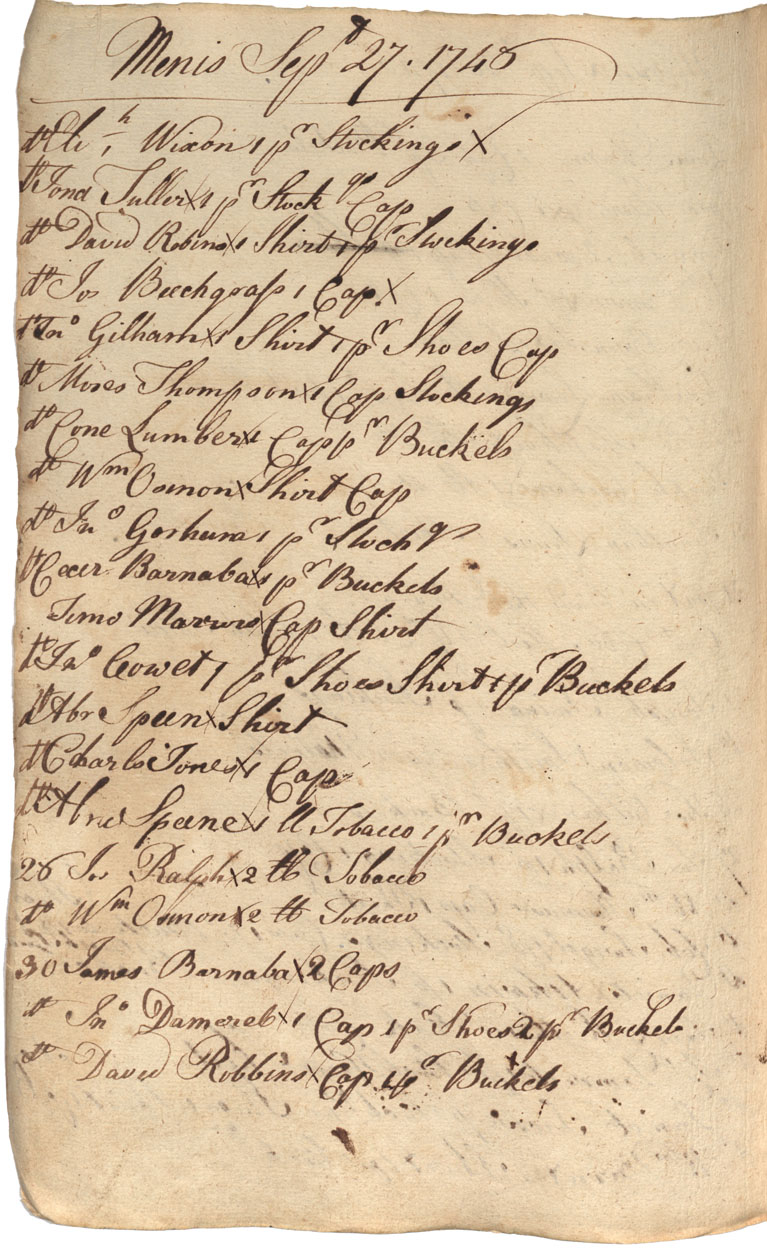 Menis Sepᵗ 27. 1748
dᵒ Eliʰ Wixon 1 pʳ Stockings X
dᵒ Jona Fuller X 1 pʳ Stockᵍˢ Cap
dᵒ David Robins X 1 Shirt 1 pʳ Stockings
dᵒ Jos Beechgrass 1 Cap X
dᵒ Jnᵒ Gilham X 1 Shirt 1 pʳ Shoes Cap
dᵒ Moses Thompson X 1 Cap Stockings
dᵒ Cone Lumber X 1 Cap pʳ Buckels
dᵒ Wᵐ Osmon X Shirt Cap
dᵒ Jnᵒ Gorham 1 pʳ Stockᵍˢ
dᵒ Barnabas pʳ Buckels
Timo X Cap Shirt
dᵒ Jnᵒ Cowet 1 pʳ Shoes Shirt 1 pʳ Buckels
dᵒ Abr Speen X Shirt
dᵒ Charls Jones X 1 Cap
dᵒ Abra Speene X 1 lb Tobacco 1 pʳ Buckels
28 Jos Ralph X 2 lb Tobacco
dᵒ Wᵐ Osmon X 2 lb Tobacco
30 James Barnaba X 2 Caps
dᵒ Jnᵒ Damereb X 1 Cap 1 pʳ Shoes 2 pʳ Buckels
dᵒ David Robbins X Cap 1 pʳ Buckels